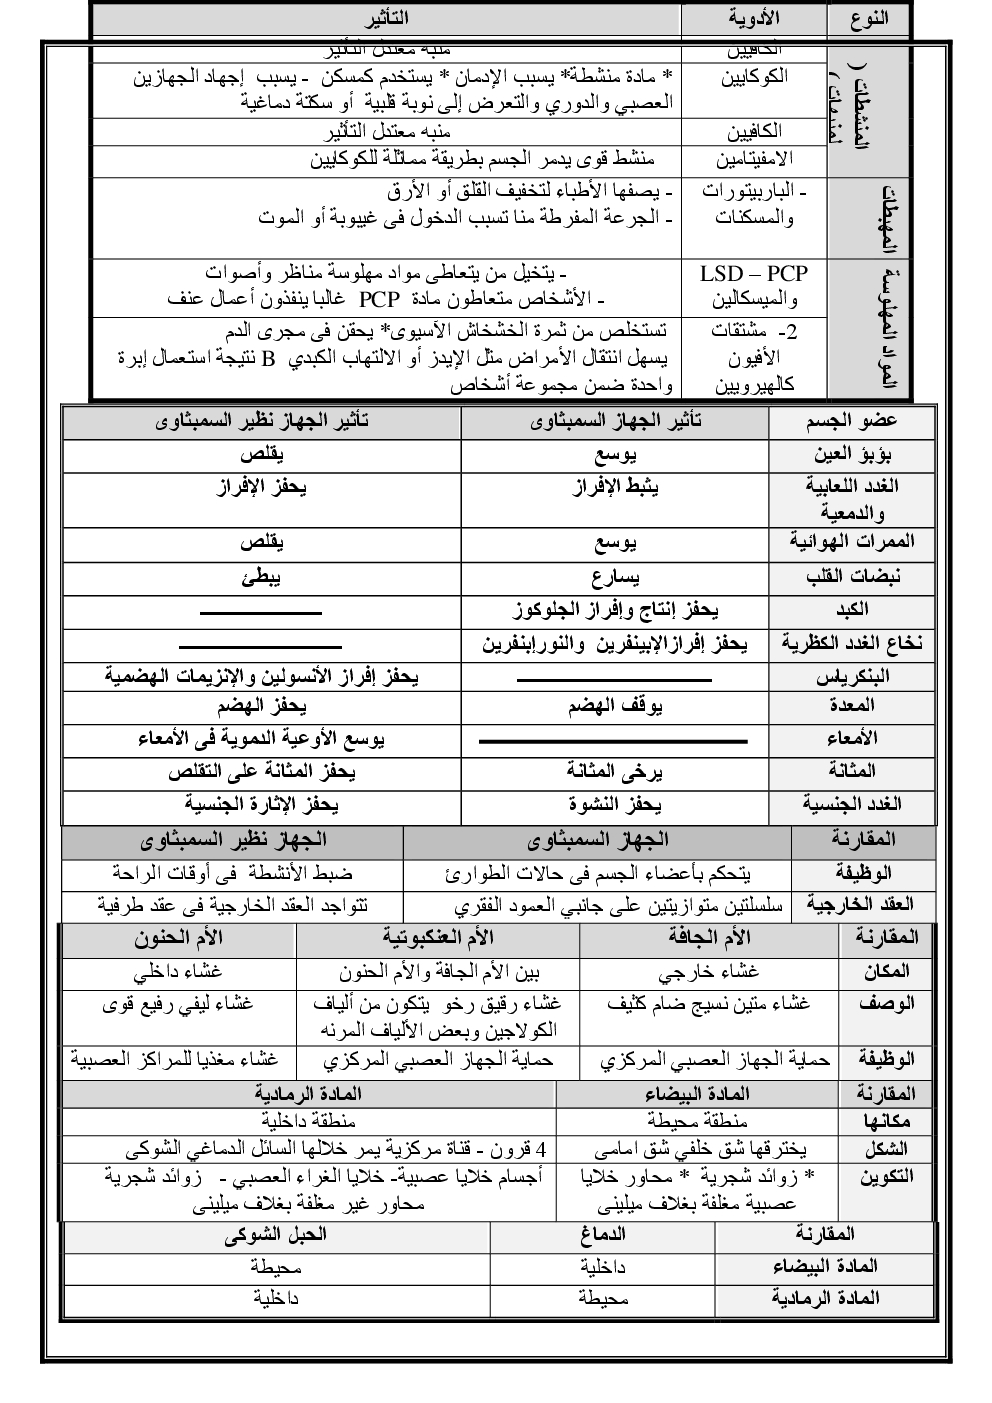 النوع الأدوية التأثير
الكافيين منبه معتدل التأثير
المنشطات (
الكوكايين * مادة منشطة* يسبب الإدمان * يستخدم كمسكن - يسبب إجهاد الجهازين
العصبي والدوري والتعرض إلى نوبة قلبية أو سكتة دماغية
الكافيين منبه معتدل التأثير
الامفيتامين منشط قوى يدمر الجسم بطريقة مماثلة للكوكايين
المهبطات
- الباربيتورات - يصفها الأطباء لتخفيف القلق أو الأرق
والمسكنات - الجرعة المفرطة منا تسبب الدخول فى غيبوبة أو الموت
المواد المهلوسة
LSD – PCP - يتخيل من يتعاطى مواد مهلوسة مناظر وأصوات
والميسكالين - الأشخاص متعاطون مادة PCP غالبا ينفذون أعمال عنف
2- مشتقات تستخلص من ثمرة الخشخاش الآسيوى* يحقن فى مجرى الدم
الأفيون يسهل انتقال الأمراض مثل الإيدز أو الالتهاب الكبدي B نتيجة استعمال إبرة
كالهيرويين واحدة ضمن مجموعة أشخاص
عضو الجسم تأثير الجهاز السمبثاوى تأثير الجهاز نظير السمبثاوى
بؤبؤ العين يوسع يقلص
الغدد اللعابية يثبط الإفراز يحفز الإفراز
والدمعية
الممرات الهوائية يوسع يقلص
نبضات القلب يسارع يبطئ
الكبد يحفز إنتاج وإفراز الجلوكوز
نخاع الغدد الكظرية يحفز إفرازالإبينفرين والنورإبنفرين
البنكرياس يحفز إفراز الأنسولين والإنزيمات الهضمية
المعدة يوقف الهضم يحفز الهضم
الأمعاء يوسع الأوعية الدموية فى الأمعاء
المثانة يرخى المثانة يحفز المثانة على التقلص
الغدد الجنسية يحفز النشوة يحفز الإثارة الجنسية
المقارنة الجهاز السمبثاوى الجهاز نظير السمبثاوى
الوظيفة يتحكم بأعضاء الجسم فى حالات الطوارئ ضبط الأنشطة فى أوقات الراحة
العقد الخارجية سلسلتين متوازيتين على جانبي العمود الفقري تتواجد العقد الخارجية فى عقد طرفية
المقارنة الأم الجافة الأم العنكبوتية الأم الحنون
المكان غشاء خارجي بين الأم الجافة والأم الحنون غشاء داخلي
الوصف غشاء متين نسيج ضام كثيف غشاء رقيق رخو يتكون من ألياف غشاء ليفي رفيع قوى
الكولاجين وبعض الألياف المرنه
الوظيفة حماية الجهاز العصبي المركزي حماية الجهاز العصبي المركزي غشاء مغذيا للمراكز العصبية
المقارنة المادة البيضاء المادة الرمادية
مكانها منطقة محيطة منطقة داخلية
الشكل يخترقها شق خلفي شق امامى 4 قرون - قناة مركزية يمر خلالها السائل الدماغي الشوكى
التكوين * زوائد شجرية * محاور خلايا أجسام خلايا عصبية- خلايا الغراء العصبي - زوائد شجرية
عصبية مغلفة بغلاف ميلينى محاور غير مغلفة بغلاف ميلينى
المقارنة الدماغ الحبل الشوكى
المادة البيضاء داخلية محيطة
المادة الرمادية محيطة داخلية